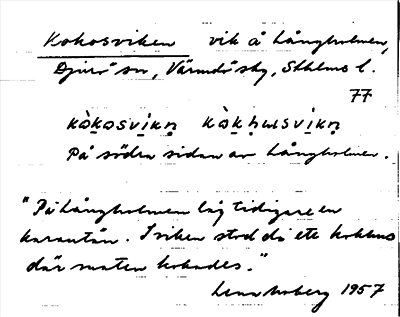 Kokosviken vik å Långholmen,
Djurö sn, Värmdö skg, Sthlms l.
77
kòkosvikn̥ kòkhusvikn̥
På södra sidan av Långholmen.
"På Långholmen låg tidigare en
karantän. I viken stod då ett kokhus
där maten kokades."
1957